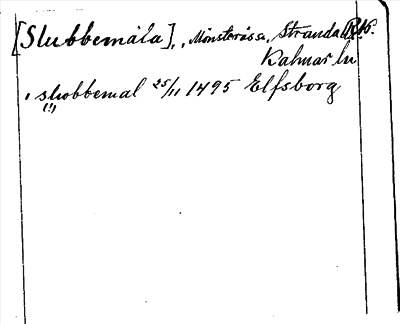 [Slubbemåla], Mönsterås sn, Stranda
Kalmar ln
i slwbbemal 25/11 1495 Elfsborg
(!)